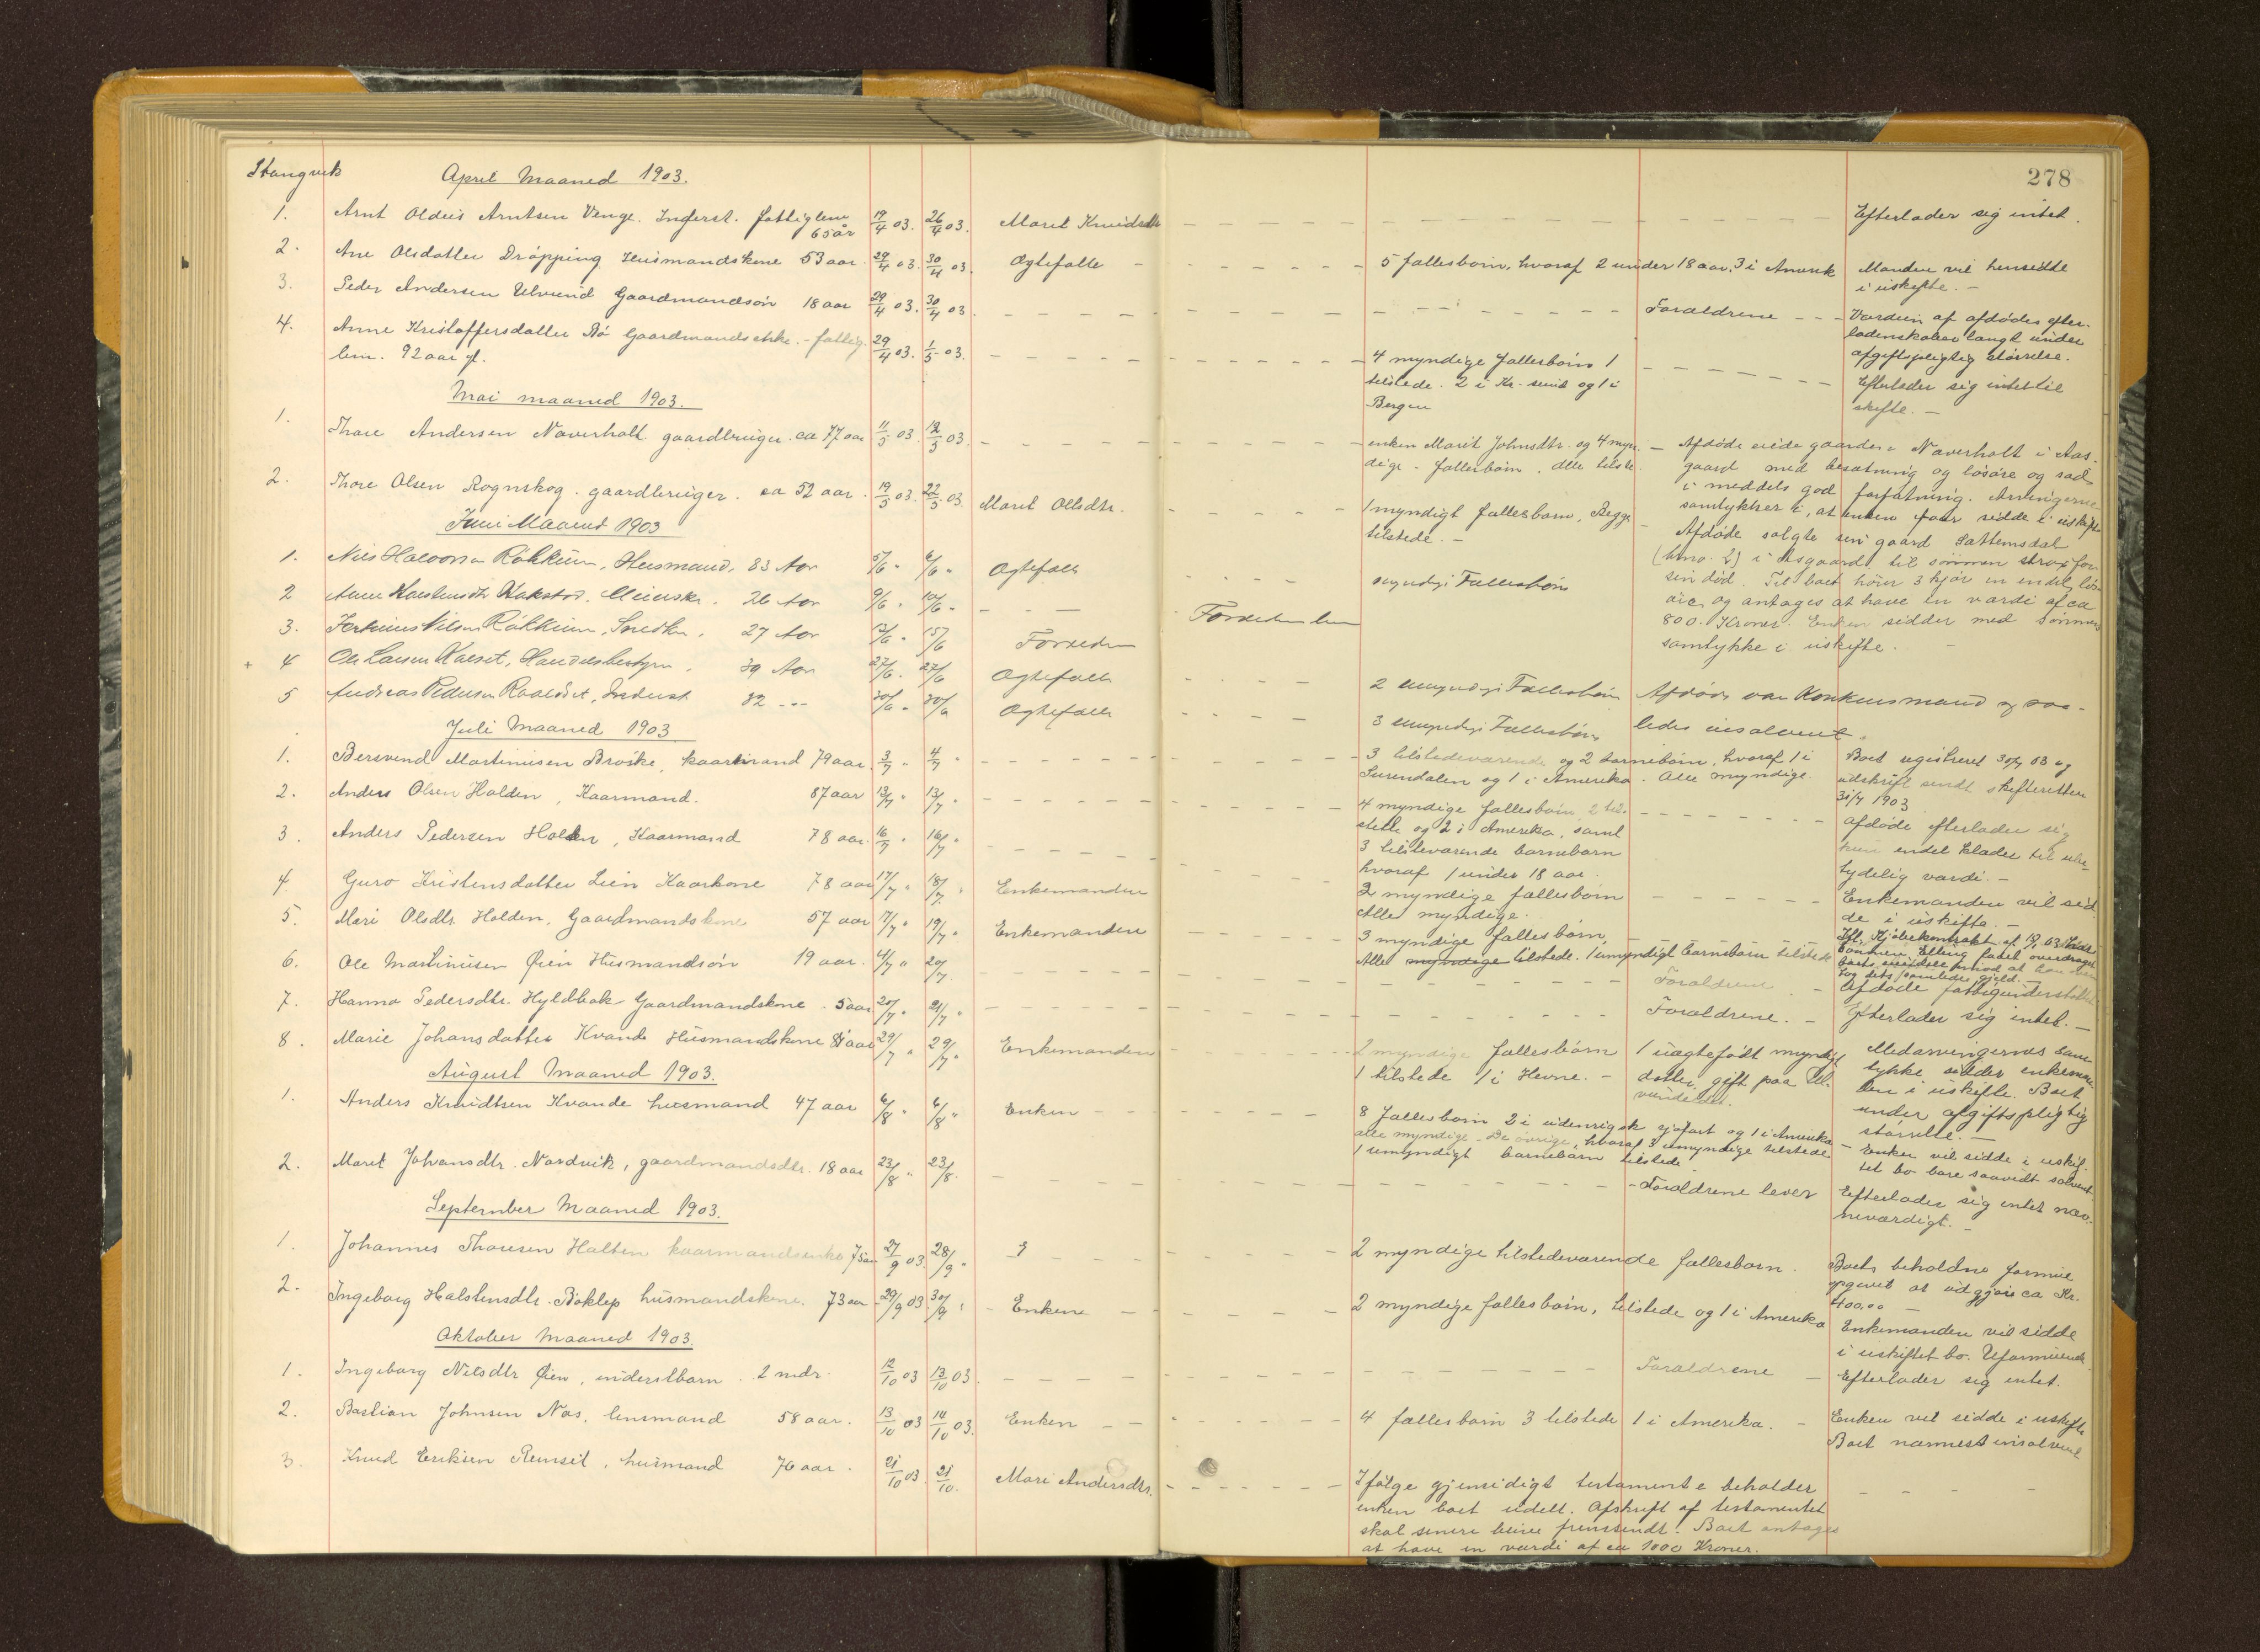 278
Stangvik April Maaned 1903.
1. Arnt Oldeus Arntsen Venge. Inderst. fattiglem 65 år 19/4 03. 26/4 03. Maret Knudsdtr - - - Efterlader sig intet.
2. Ane Olsdatter Drøpping Husmandskone 53 aar. 29/4 03. 30/4 03. Ægtefælle - - - 5 fællesbørn, hvoraf 2 under 18 aar, 3 i Amerik Manden vil hensidde
i uskifte. -
3. Peder Andersen Ulvund Gaardmandsøn 18 aar 29/4 03. 30/4 03 - - - Forældrene - - - Værdien af afdødes efter-
ladenskaber langt under
afgiftspligtig størrelse.
4. Anne Kristoffersdatter Bø Gaardmandsenke. - fattig-
lem. 92 aar gl. 29/4 03. 1/5 03. - - - 4 myndige fællesbørn 1
tilstede. 2 i Kr. sund og 1 i
Bergen
Efterlader sig intet til
skifte. -
Mai maaned 1903.
1. Thore Andersen Naverholt gaardbruger. ca 77 aar 11/5 03. 12/5 03. - - - enken Marit Johnsdtr. og 4 myn-
dige - fællesbørn, alle tilste.
- Afdøde eiede gaarden Naverholt i Aas-
gaard med besætning og løsøre og sæd
i meddels god forfatning. Arvingerne
samtykker i, at enken faar sidde i uskifte
2. Thore Olsen Rognskog. gaardbruger. ca 52 aar. 19/5 03. 22/5 03. Marit Olsdtr. - - - 1 myndigt fællesbarn, Begge
tilstede. -
Afdøde solgte sin gaard Sættemsdal
(bno. 2) i Aasgaard til sønnen strax før
sin død. Til boet hører 3 kjør en endel løs-
øre og antages at have en værdi af ca
800. Kroner. Enken sidder med sønnens
samtykke i uskifte. -
Juni Maaned 1903
1. Nils Halvorsen Røkkum, Husmand, 83 Aar 5/6 " 6/6 " Ægtefælle - - - myndige Fællesbørn
2 Anne Karstensdtr Kakstad. Meierske. 26 Aar 9/6 " 10/6 " - - - Forældrene
3. Nilsen Røkkum, Snedker, 27 Aar 13/6 " 15/6 Forældre
+ 4 Ole Larsen Kalset, Handelsbestyrer. 39 Aar 27/6. 27/6 Ægtefælle - - - 2 umyndige Fællesbørn Afdøde var Konkursmand og saa-
ledes insolvent.
5 Andreas Pedersen, Inderst 82 - " - 30/6 " 30/6 Ægtefælle - - - 3 umyndige Fællesbørn
Juli Maaned 1903
1. Bersvend Martinusen Brøske, kaarmand 79 aar. 3/7 " 4/7 " - - - 3 tilstedeværende og 2 barnebørn, hvoraf 1 i
Surendalen og 1 i Amerika. Alle myndige.
Boet registreret 30/7 03 og
udskrift sendt skifteretten
31/7 1903
2. Anders Olsen Halden, Kaarmand. 87 aar 13/7 " 13/7 " - - - 4 myndige fællesbørn, 2 til-
stede og 2 i Amerika, samt
3 tilsteværende barnebarn
hvoraf 1 under 18 aar.
Afdøde efterlader sig
kun endel klæder til ube-
tydelig værdi. -
3. Anders Pedersen Halden, Kaarmand 78 aar. 16/7 16/7 " - - -
4. Guro Kristensdatter Lien Kaarkone 78 aar 17/7 " 18/7 " Enkemanden - - - 2 myndige fællesbørn
Alle myndige.
Enkemanden vil sid-
de i uskifte. -
5. Mari Olsdtr. Halden, Gaardmandskone 57 aar 17/7 " 19/7 " Enkemanden - - - 3 myndige fællesbørn
Alle myndige tilstede. 1 umyndigt barnebarn tilstede
Ifl. Kjøbekontrakt af
sønnen Elling
boets mod at han over-
tog dets samlede gjeld. -
6. Ole Martinusen Øien Husmandsøn 19 aar. 4/7 " 20/7. - - - Forældrene - Afdøde fattigunderstøttet
7. Hanna Pedersdtr. Hyldbak Gaardmandskone. 5 aar 20/7 " 21/7 " - - - Forældrene. - Efterlader sig intet. -
8. Marie Johansdatter Kvande Husmandskone 81 aar 29/7 " 29/7 " Enkemanden - - - 2 myndige fællesbørn
1 tilstede 1 i Hevne. -
1 uægtefødt myndig
datter, gift paa Ul-
vundeidet.
Medarvingernes sam-
tykke sidder enkeman-
den i uskifte. Boet
under afgiftspligtig
størrelse. -
August Maaned 1903.
1. Anders Knudtsen Kvande husmand 47 aar 6/8 " 6/8 " Enken - - - 8 fællesbørn 2 i udenrigsk sjøfart og 1 i Amerika
alle myndige - De øvrige, hvoraf 3 umyndige tilstede
1 umyndigt barnebarn tilstede.
- Enken vil sidde i uskif-
tet bo bare saavidt solvent
2. Maret Johansdtr. Nordvik, gaardmandsdtr. 18 aar 23/8 " 23/8. - - - Forældrene lever Efterlader sig intet næv-
neværdigt. -
September Maaned 1903.
1. Johannes Thoresen Halten kaarmandsenke 75 aar 27/9 03. 28/9 " - - - 2 myndige tilstedeværende fællesbørn. Boets beholdne formue
opgivet at udgjøre ca Kr.
400,00 -
2. Ingeborg Halstensdtr. Bøklep husmandskone. 73 aar 29/9 03 30/9 " - Enkene - - - 2 myndige fællesbørn, tilstede og 1 i Amerika Enkemanden vil sidde
i uskiftet bo. Uformuende
Oktober Maaned 1903.
1. Ingeborg Nilsdtr Øien, inderstbarn. 2 mdr. 12/10 03 13/10 03. - - - Forældrene - Efterlader sig intet.
2. Bastian Johnsen Næs, lensmand 58 aar. 13/10 03 14/10 03. Enken - - - 4 fællesbørn 3 tilstede 1 i Amerika. - Enken vil sidde i uskifte
Boet nærmest insolvent
3. Knud Eriksen Remsit, husmand 76 aar. 21/10 03 21/10. Mari Andersdtr. - - - Ifølge gjensidigt testamente beholder
enken boet udelt. Afskrift af testamentet
skal senere blive fremsendt. Boet antages
at have en værdi af ca 1000 Kroner.